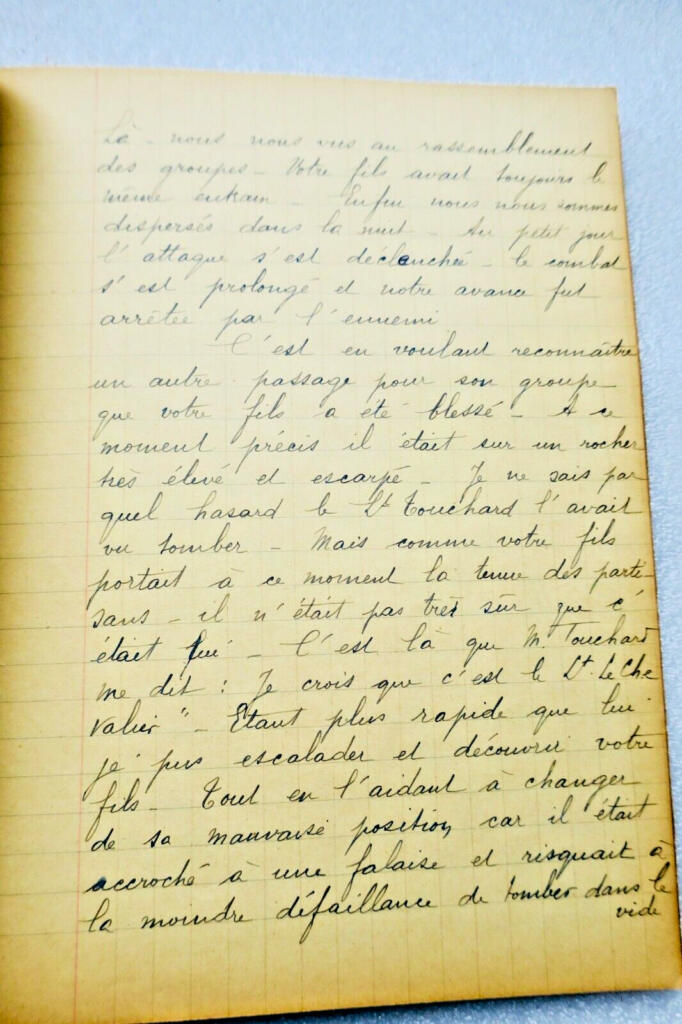 Là - nous nous vus au rassemblement
des groupes - Votre fils avait toujours le
même entrain - Enfin nous nous sommes
dispersés dans la nuit - Au petit jour
l'attaque s'est déclenchée - le combat
s'est prolongé et notre avance fut
arrêtée par l'ennemi
C'est en voulant reconnaître
un autre passage pour son groupe
que votre fils a été blessé - A ce
moment précis il était sur un rocher
très élevé et escarpé - Je ne sais par
quel hasard le Lt Touchard l'avait
vu tomber - Mais comme votre fils
portait à ce moment la tenue des parti-
sans - il n'était pas très sûr que c'
était lui - C'est là que M. Touchard
me dit : Je crois que c'est le Lt. Le Che
valier" - Etant plus rapide que lui
je pus escalader et découvrir votre
fils - Tout en l'aidant à changer
de sa mauvaise position, car il était
accroché à une falaise et risquait à
la moindre défaillance de tomber dans le
vide